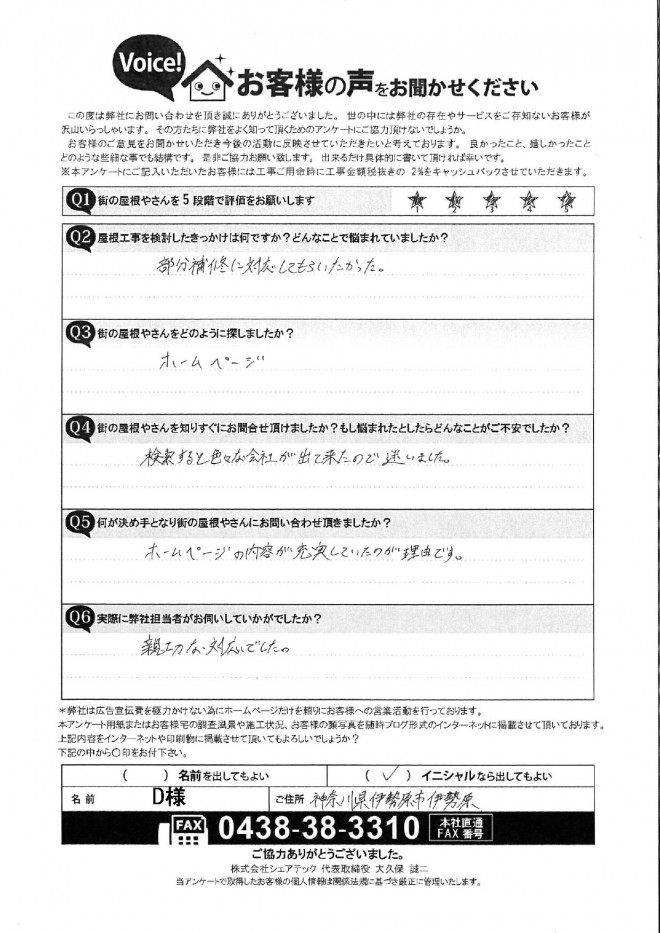 Voice!
お客様の声をお聞かせください
この度は弊社にお問い合わせを頂き誠にありがとうございました。 世の中には弊社の存在やサービスをご存知ないお客様が
沢山いらっしゃいます。 その方たちに弊社をよく知って頂くためのアンケートにご協力頂けないでしょうか。
お客様のご意見をお聞かせいただき今後の活動に反映させていただきたいと考えております。 良かったこと、嬉しかったこと
どのような些細な事でも結構です。 是非ご協力お願い致します。 出来るだけ具体的に書いて頂ければ幸いです。
※本アンケートにご記入いただいたお客様には工事ご用命時に工事金額税抜きの 2%をキャッシュバックさせていただきます。
Q1 街の屋根やさんを5段階で評価をお願いします
1 2 3 4 5
Q2 屋根工事を検討したきっかけは何ですか?どんなことで悩まれていましたか?
部分補修に対応してもらいたかった。
Q3 街の屋根やさんをどのように探しましたか?
ホームページ
Q4 街の屋根やさんを知りすぐにお問合せ頂けましたか?もし悩まれたとしたらどんなことがご不安でしたか?
検索すると色々な会社が出て来たので迷いました。
Q5 何が決め手となり街の屋根やさんにお問い合わせ頂きましたか?
ホームページの内容が充実していたのが理由です。
Q6 実際に弊社担当者がお伺いしていかがでしたか?
親切な対応でした。
＊弊社は広告宣伝費を極力かけない為にホームページだけを頼りにお客様への営業活動を行っております。
本アンケート用紙またはお客様宅の調査風景や施工状況、お客様の顔写真を随時ブログ形式のインターネットに掲載させて頂いております。
上記内容をインターネットや印刷物に掲載させて頂いてもよろしいでしょうか?
下記の中から〇印をお付下さい。
( ) 名前を出してもよい ( ✓ ) イニシャルなら出してもよい
名前 D様 ご住所 神奈川県伊勢原市伊勢原
FAX 0438-38-3310 本社直通 FAX 番号
ご協力ありがとうございました。
株式会社シェアテック 代表取締役 大久保 誠二
当アンケートで取得したお客様の個人情報は関係法規に基づき厳正に管理いたします。